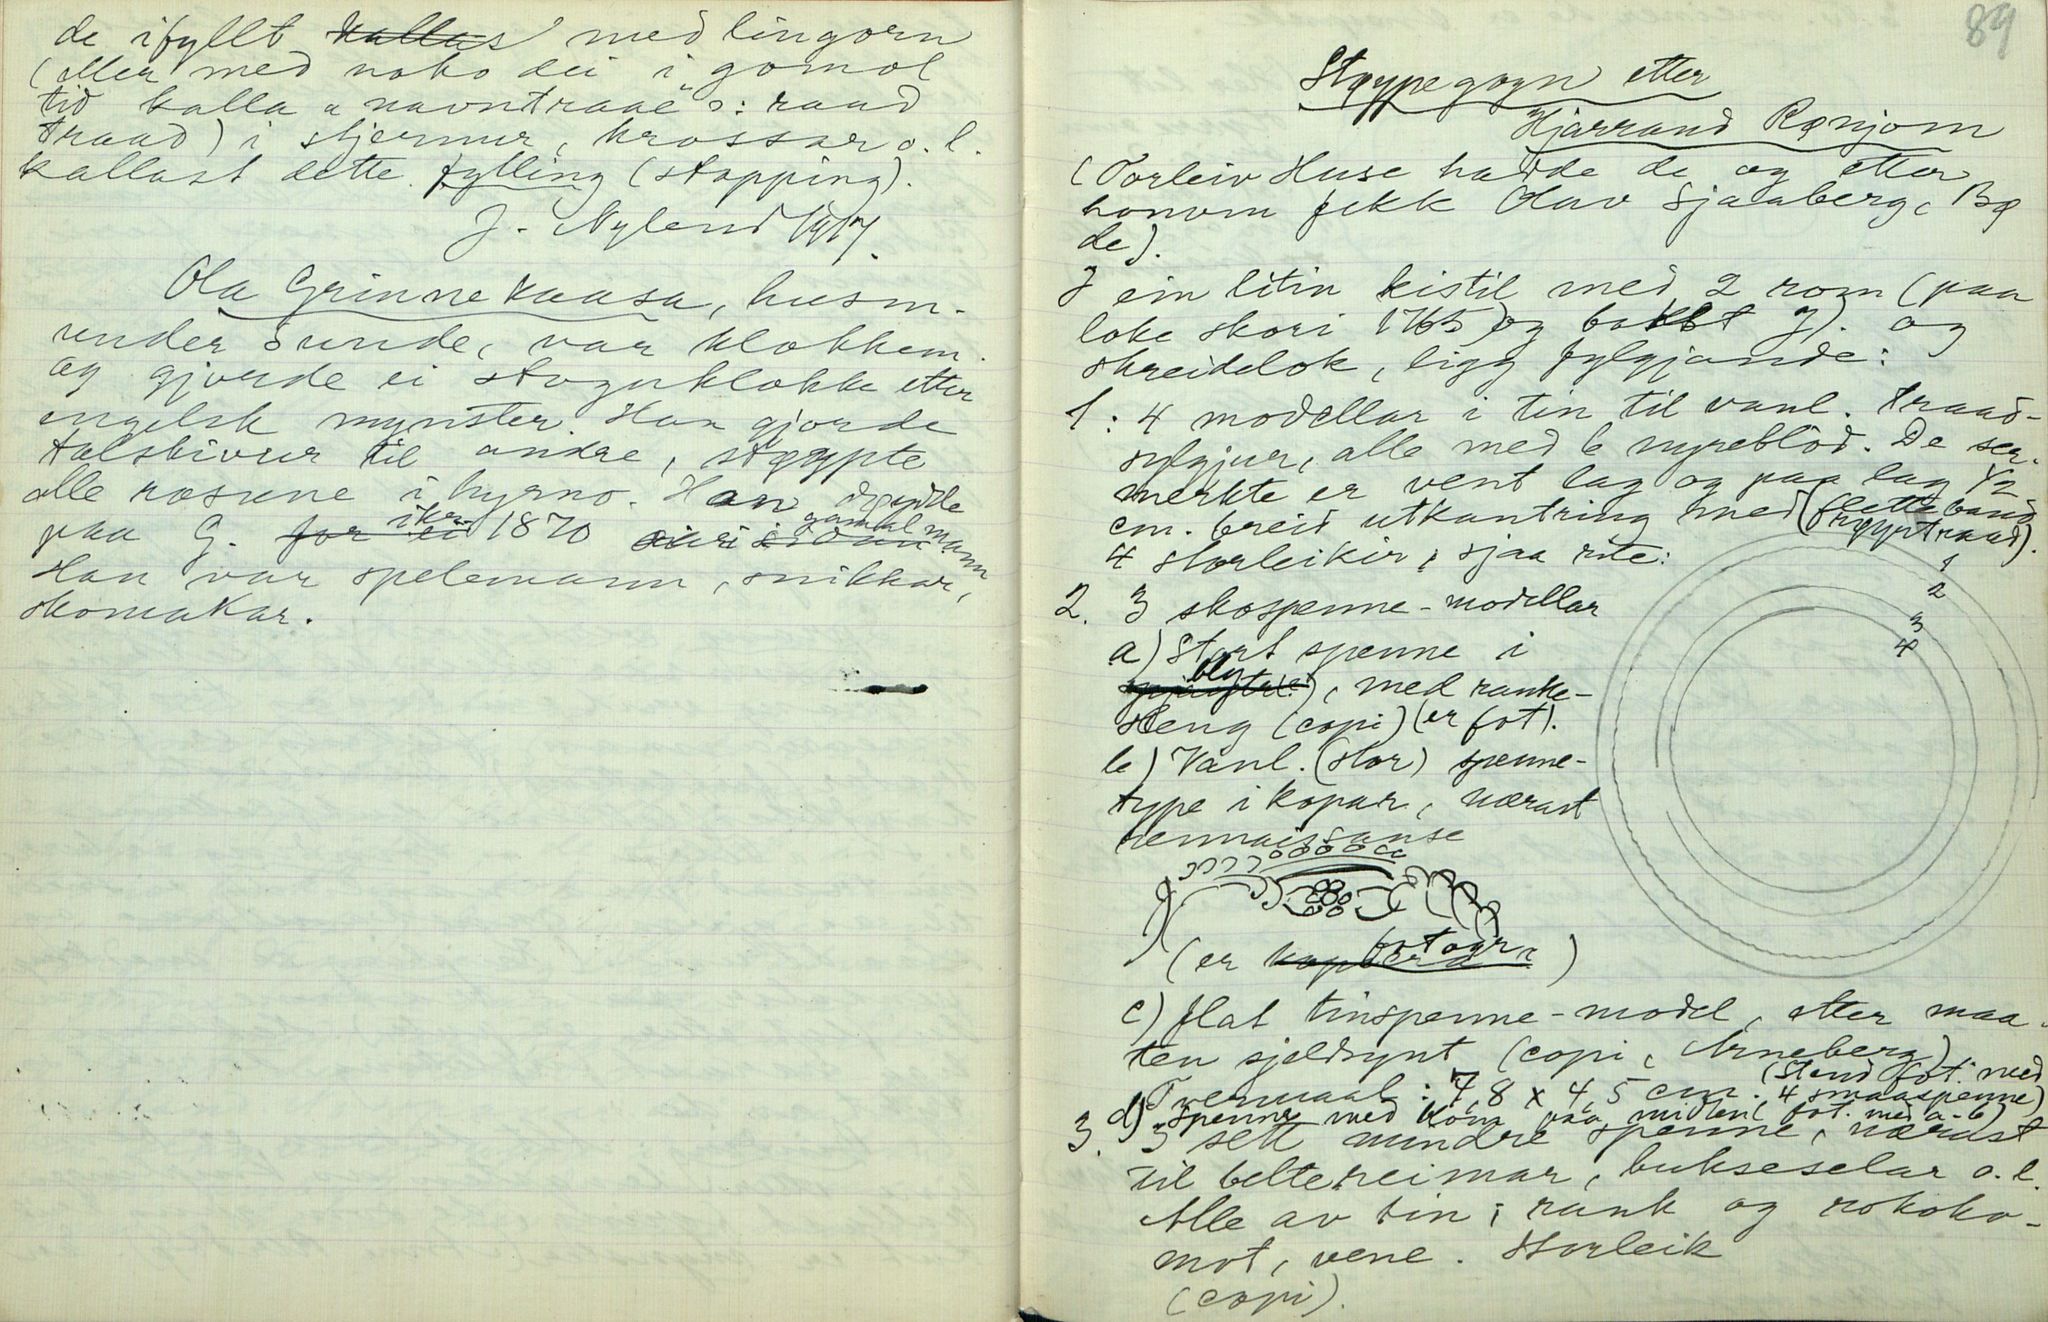 de ifyllt kallas med lingorn
(eller med noko dei i gomol
tid kalla "navntraae" ɔ: raud
traad) i stjernur, krossar o. l.
kallast dette fylling (stopping).
J. Nylend 1917.
Ola Grinnekaasa, husm.
under Sunde, var klokkem.
og gjorde ei stoguklokke etter
engelsk mynster. Han gjorde
talskivur til andre, støypte
alle rosune i hyrno. Han døydde
paa G. for ei ikr. 1870 gamal mann
Han var spelemann, snikkar,
skomakar.
89
Støypegogn etter
Hjarrand Rønjom
(Torleiv Huse hadde de og etter
honom fekk Olav Sjaaberg, Bø
de).
I ein litin kistil med 2 rom (paa
loke skori 1765) og bokst J). og
skreidelok, ligg fylgjande:
1: 4 modellar i tin til vanl. traad-
sylgjur, alle med 6 nyreblod. De ser-
merkte er vent lag og paa lag 1/2
cm. breid utkantring med (flette band
støypt traad).
4 storleikir, sjaa rite:
1
2
3
4
2. 3 skospenne-modellar
a) Stort spenne i
bly, med ranke-
steng (copi) (er fot).
b) Vanl. (stor) spenne-
type i kopar, nærast
rennaissanse
(er kopiera fotogr.)
c) flat tinspenne-model, etter maa-
ten sjeldsynt (copi, Arneberg)
Tvermaal: 7,8 x 4,5 cm. (Stend fot. med
4 smaaspenne)
d) Spenne med kom paa midten (fot. med a-b)
3. 3 sett mindre spenne, nærast
til beltereimar, bukseselar o. l.
Alle av tin i rank og rokoko-
mot, vene. Storleik
(copi).